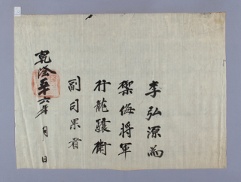 李弘源爲
禦侮將軍
行龍驤衛
副司果者
乾隆五十六年 月 日